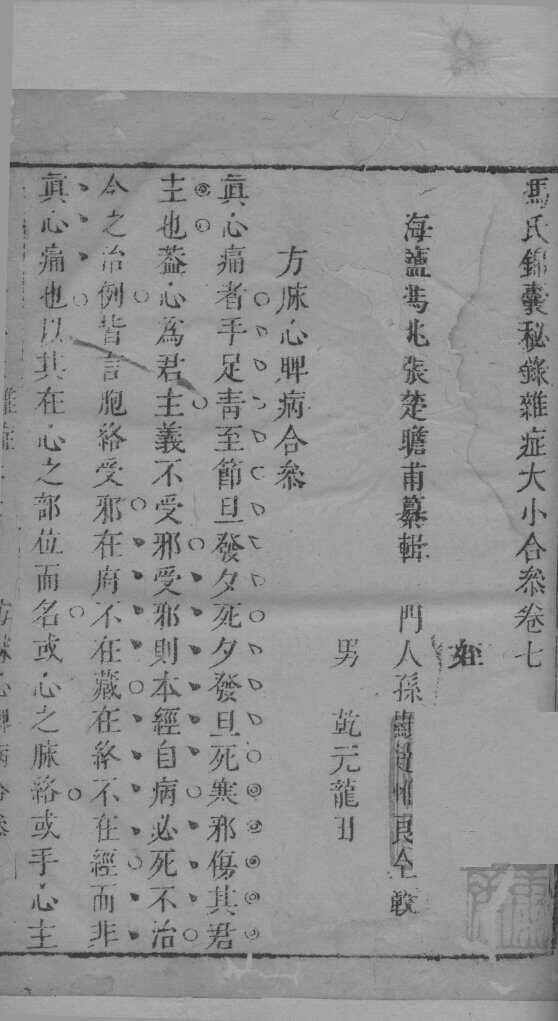 馮氏錦囊秘錄雜症大小合叅卷七
海鹽馮兆張楚瞻甫纂輯 門人孫
全較
姪
男 乾元龍田
方脉心脾病合叅
眞心痛者手足靑至節旦發夕死夕發旦死寒邪傷其君
主也葢心爲君主義不受邪受邪則本經自病必死不治
今之治例皆言胞絡受邪在腑不在藏在絡不在經而非
眞心痛也以其在心之部位而名或心之脉絡或手心主